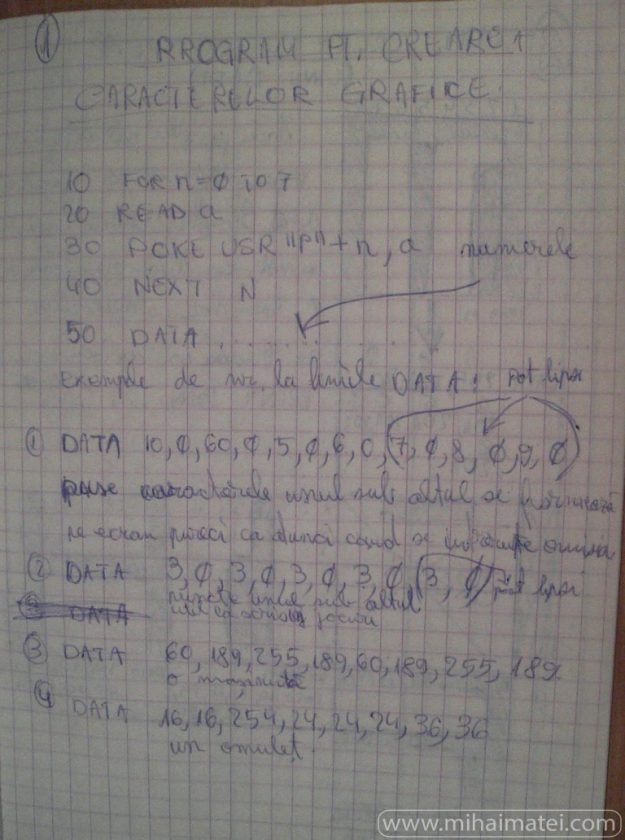 1
PROGRAM PT. CREAREA
CARACTERELOR GRAFICE
10 FOR n=0 TO 7
20 READ a
30 POKE USR "P"+n, a numerele
40 NEXT N
50 DATA . . . . . . .
Exemple de nr. la liniile DATA: pot lipsi
1 DATA 10, 0, 60, 0, 5, 0, 6, 0, (7, 0, 8, 0, 9, 0)
puse caracterele unul sub altul se formează
pe ecran ca atunci când se
2 DATA 3, 0, 3, 0, 3, 0, 3, 0, (3, 0) pot lipsi
unul sub altul
3 DATA
3 DATA 60, 189, 255, 189, 60, 189, 255, 189
o mașinuță
4 DATA 16, 16, 254, 24, 24, 24, 36, 36
un omuleț
www.mihaimatei.com